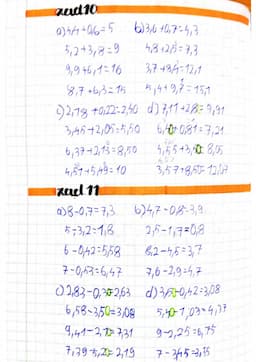 zad 10
a) 4,4+0,6=5 b) 3,6+0,7=4,3
5,2+3,8=9 4,8+2,5=7,3
9,9+6,1=16 3,7+8,4=12,1
8,7+6,3=15 5,4+9,7=15,1
c) 2,18+0,22=2,40 d) 7,11+2,8=9,91
3,45+2,05=5,50 6,40+0,81=7,21
6,37+2,13=8,50 4,55+3,50=8,05
4,51+5,49=10 3,57+8,50=12,07
zad 11
a) 8-0,7=7,3 b) 4,7-0,8=3,9
5-3,2=1,8 2,5-1,7=0,8
6-0,42=5,58 8,2-4,5=3,7
7-0,53=6,47 7,6-2,9=4,7
c) 2,83-0,20=2,63 d) 3,50-0,42=3,08
6,58-3,50=3,08 5,40-1,03=4,37
9,41-2,10=7,31 9-2,25=6,75
7,39-5,20=2,19 7-3,45=3,55